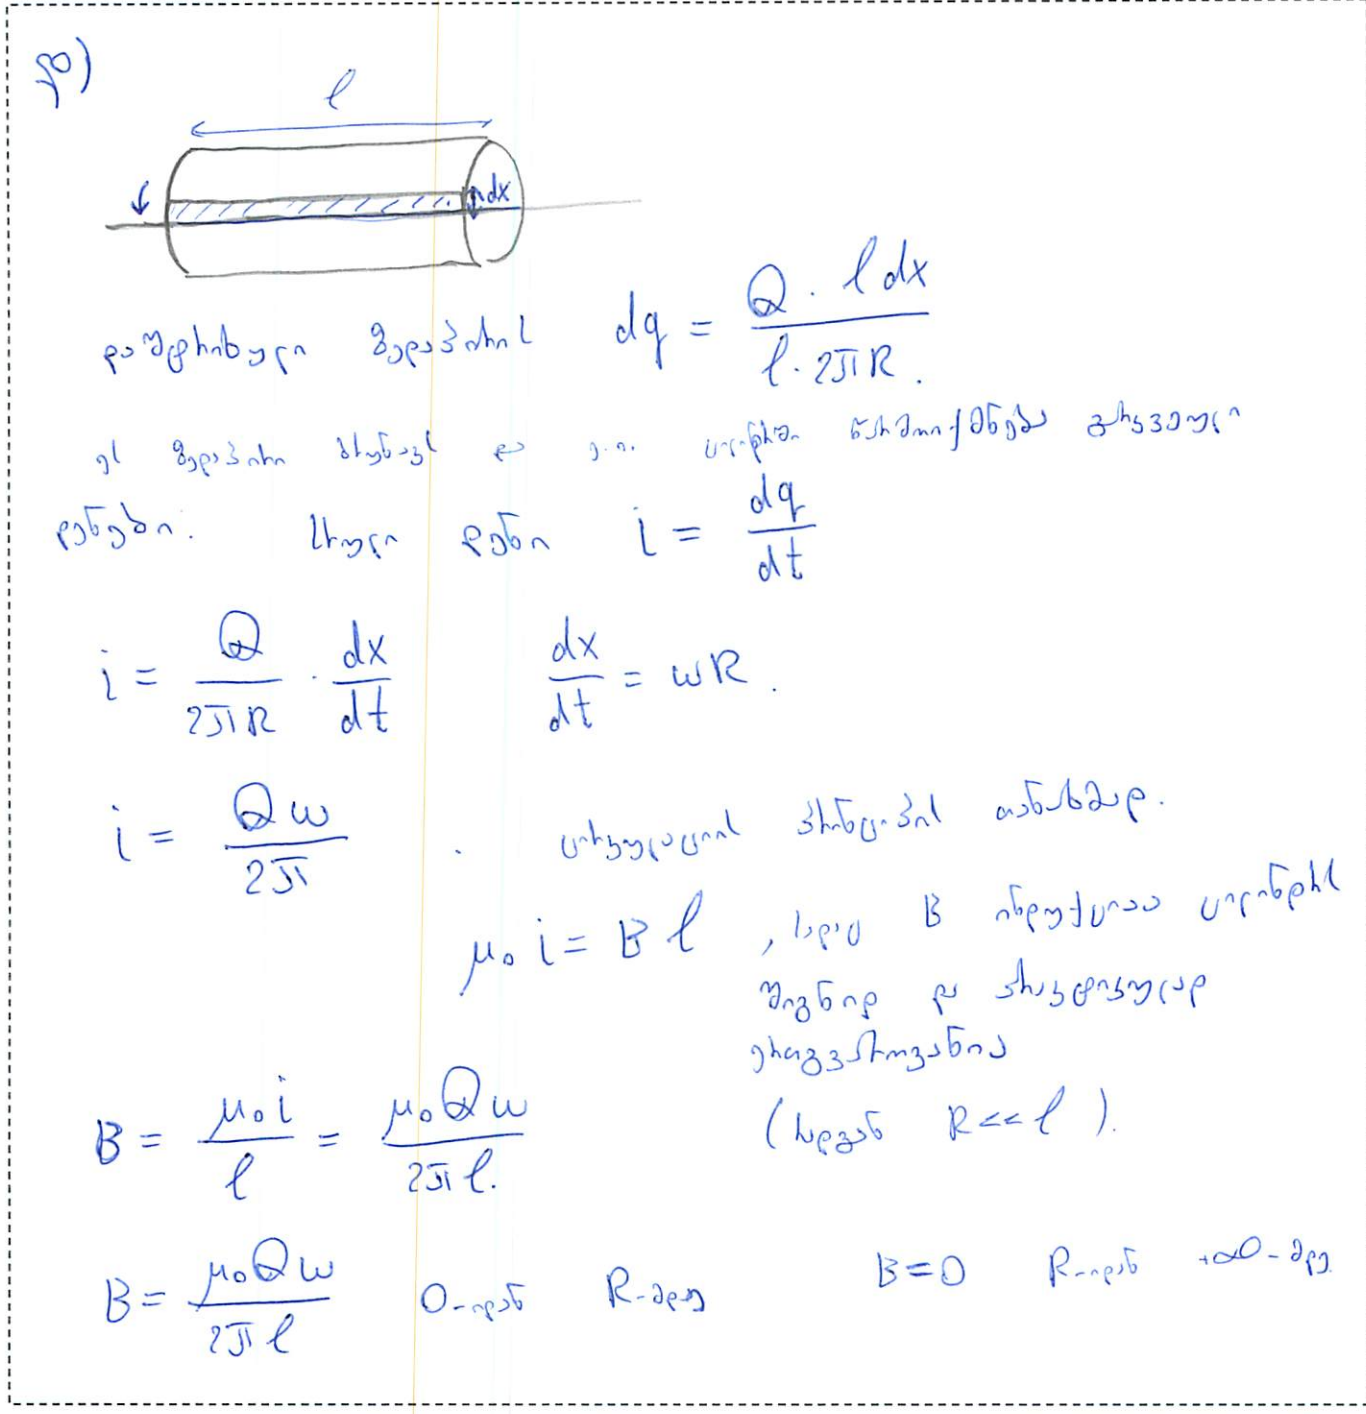 დ)
l
dx
დაშტრიხული ზედაპირის dq = Q · l dx / l · 2πR .
ეს ზედაპირი ბრუნავს და ე.ი. ცილინდრში წარმოიქმნება გარკვეული
დენები. სრული დენი i = dq / dt
i = Q / 2πR · dx / dt dx / dt = ωR .
i = Qω / 2π . ცირკულაციის პრინციპის თანახმად.
μ₀ i = B l , სადაც B ინდუქციაა ცილინდრს
შიგნით და პრაქტიკულად
ერთგვაროვანია
(რადგან R << l ).
B = μ₀ i / l = μ₀ Q ω / 2π l.
B = μ₀ Q ω / 2π l 0-იდან R-მდე B = 0 R-იდან +∞-მდე.